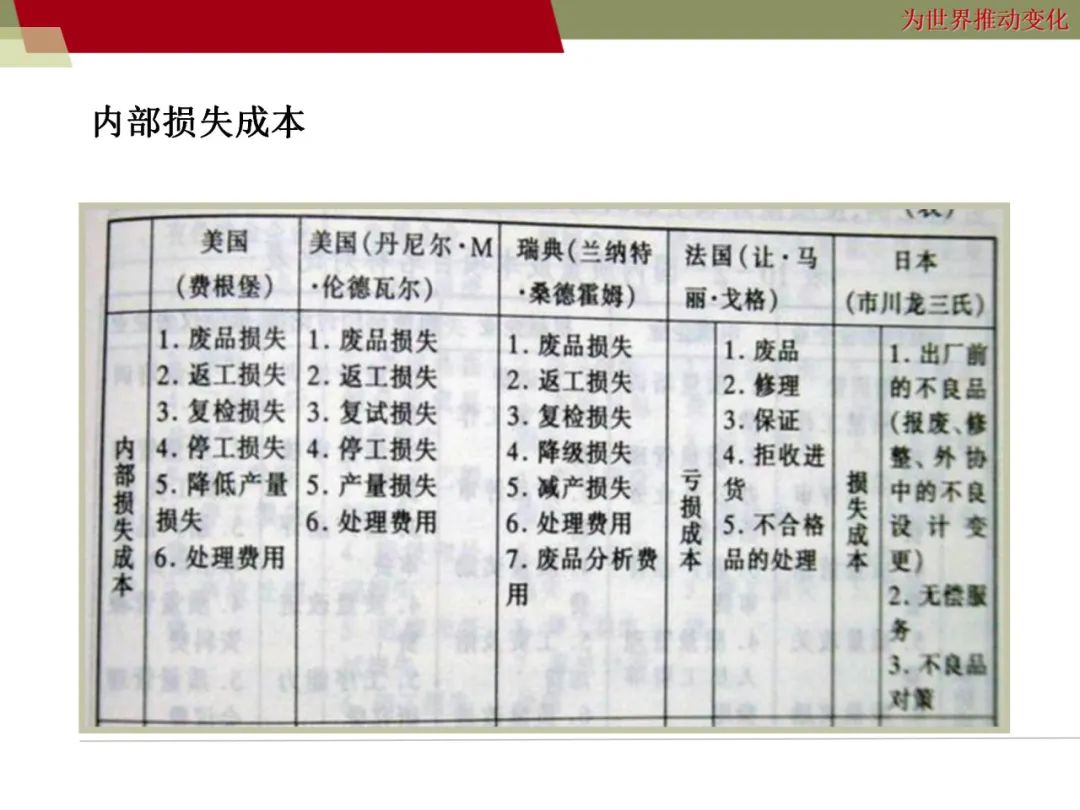 为世界推动变化
内部损失成本
美国
(费根堡)
美国(丹尼尔·M
·伦德瓦尔)
瑞典(兰纳特
·桑德霍姆)
法国(让·马
丽·戈格)
日本
(市川龙三氏)
内部损失成本
1. 废品损失
2. 返工损失
3. 复检损失
4. 停工损失
5. 降低产量
损失
6. 处理费用
1. 废品损失
2. 返工损失
3. 复试损失
4. 停工损失
5. 产量损失
6. 处理费用
1. 废品损失
2. 返工损失
3. 复检损失
4. 降级损失
5. 减产损失
6. 处理费用
7. 废品分析费
用
亏损成本
1. 废品
2. 修理
3. 保证
4. 拒收进
货
5. 不合格
品的处理
损失成本
1. 出厂前
的不良品
(报废、修
整、外协
中的不良
设计变
更)
2. 无偿服
务
3. 不良品
对策